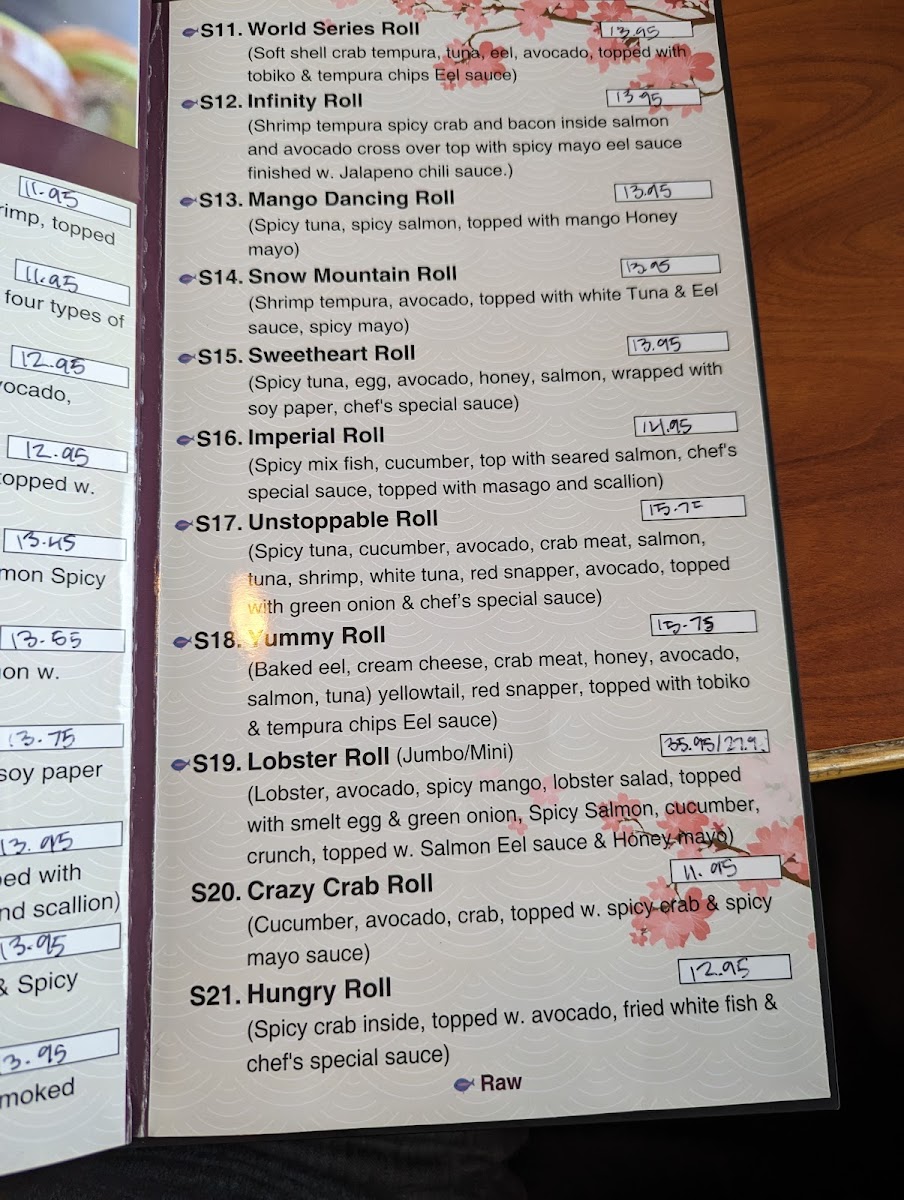 11.95
rimp, topped
11.95
four types of
12.95
vocado,
12.95
topped w.
13.45
mon Spicy
13.55
on w.
13.75
soy paper
13.95
ped with
nd scallion)
13.95
& Spicy
3.95
moked
S11. World Series Roll 13.95
(Soft shell crab tempura, tuna, eel, avocado, topped with
tobiko & tempura chips Eel sauce)
S12. Infinity Roll 13.95
(Shrimp tempura spicy crab and bacon inside salmon
and avocado cross over top with spicy mayo eel sauce
finished w. Jalapeno chili sauce.)
S13. Mango Dancing Roll 13.95
(Spicy tuna, spicy salmon, topped with mango Honey
mayo)
S14. Snow Mountain Roll 13.95
(Shrimp tempura, avocado, topped with white Tuna & Eel
sauce, spicy mayo)
S15. Sweetheart Roll 13.95
(Spicy tuna, egg, avocado, honey, salmon, wrapped with
soy paper, chef's special sauce)
S16. Imperial Roll 14.95
(Spicy mix fish, cucumber, top with seared salmon, chef's
special sauce, topped with masago and scallion)
S17. Unstoppable Roll 15.75
(Spicy tuna, cucumber, avocado, crab meat, salmon,
tuna, shrimp, white tuna, red snapper, avocado, topped
with green onion & chef's special sauce)
S18. Yummy Roll 15.75
(Baked eel, cream cheese, crab meat, honey, avocado,
salmon, tuna) yellowtail, red snapper, topped with tobiko
& tempura chips Eel sauce)
S19. Lobster Roll (Jumbo/Mini) 35.95/27.9
(Lobster, avocado, spicy mango, lobster salad, topped
with smelt egg & green onion, Spicy Salmon, cucumber,
crunch, topped w. Salmon Eel sauce & Honey mayo)
S20. Crazy Crab Roll 11.95
(Cucumber, avocado, crab, topped w. spicy crab & spicy
mayo sauce)
S21. Hungry Roll 12.95
(Spicy crab inside, topped w. avocado, fried white fish &
chef's special sauce)
Raw